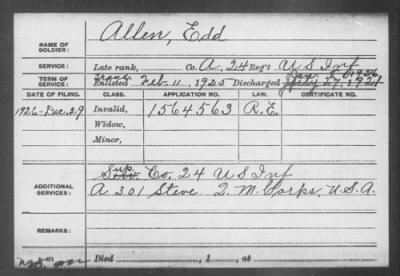 Allen, Edd
NAME OF SOLDIER:
SERVICE: Late rank, Co. A, 24 Reg't U S Inf
TERM OF SERVICE: Enlisted Feb. 11, 1925 Discharged
DATE OF FILING. CLASS. APPLICATION NO. LAW. CERTIFICATE NO.
1926-Dec. 29 Invalid, 1564563 R.E.
Widow,
Minor,
Sup. Co. 24 U S Inf
ADDITIONAL SERVICES: A 301 Steve. Q. M. Corps, U.S.A.
REMARKS:
Died , 1 , at